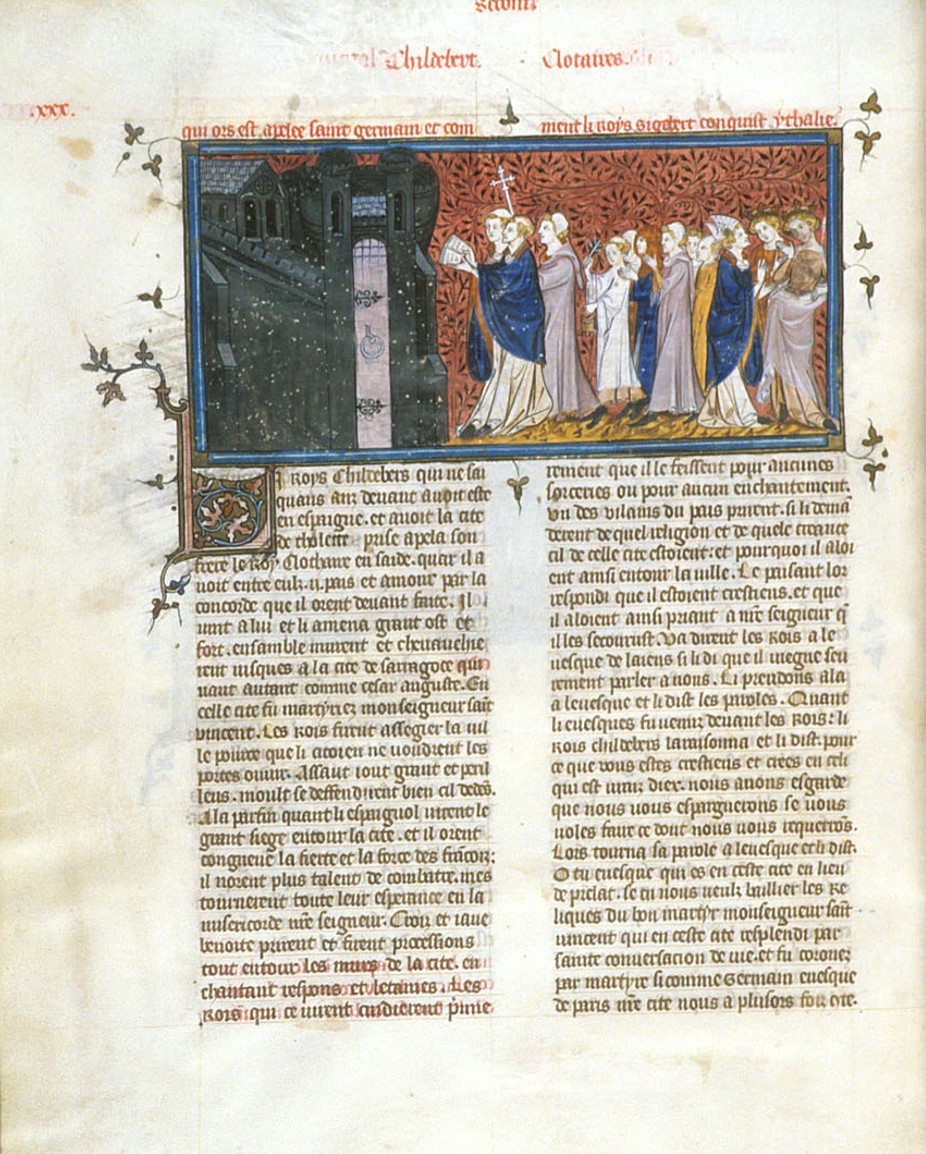 second
Childebert. Clotaires.
xxx.
qui ors est apelee saint germain et com
ment li roys sigebert conquist ythalie.
I roys Childebers qui ne sai
quans anz deuant auoit este
en espaigne. et auoit la cite
de tholette prise apela son
frere le Roy Clothaire en saide. quar il a
uoit entre eulz .ii. pais et amour par la
concorde que il orent deuant faite. Il
uint a lui et li amena grant ost et
fort. ensamble murent et cheuauchie
rent iusques a la cite de sarragoce qui
uaut autant comme cesar auguste. En
celle cite fu martyriez monseigneur saint
vincent. Les Rois firent assegier la uil
le pource que li citoien ne uoudrent les
portes ouurir. Assaut iout grant et peril
leus. moult se deffendirent bien cil dedes.
A la parfin quant li espaignol uirent le
grant siege entour la cite. et il orent
congneue la fierte et la force des francois:
il norent plus talent de combatre. mes
tournerent toute leur esperance en la
misericorde nre seigneur. Croiz et iaue
benoite prirent et firent processions
tout entour les murs de la cite. en
chantant respons et letanies. Les
Rois qui ce uirent cuidierent prime
rement que il le feissent pour aucunes
sorceries ou pour aucun enchantement.
Vn des vilains du pais prirent. si li demā
derent de quel religion et de quele creance
cil de celle cite estoient: et pourquoi il aloi
ent ainsi entour la uille. Le paisant lor
respondi que il estoient crestiens. et que
il aloient ainsi priant a nre seigneur q̄
il les secourust. Va dirent les Rois a le
uesque de laiens si li di que il uiegne seu
rement parler a nous. Li preudons ala
a leuesque et li dist les paroles. Quant
li euesques fu uenuz deuant les Rois: li
Rois childebers laraisonna et li dist. pour
ce que vous estes crestiens et creez en celi
qui est uraiz diex. nous auons esgarde
que nous uous espargnerons se uous
uoles faire ce dont nous uous requerrōs.
Lors tourna sa parole a leuesque et li dist.
O tu euesque qui es en ceste cite en lieu
de prelat. se tu nous ueulz baillier les Re
liques du bon martyr monseigneur saīt
uincent qui en ceste cite resplendi par
sainte conuersacion de uie. et fu coronez
par martyre si comme Germain euesque
de paris nre cite nous a plusors foiz dit.